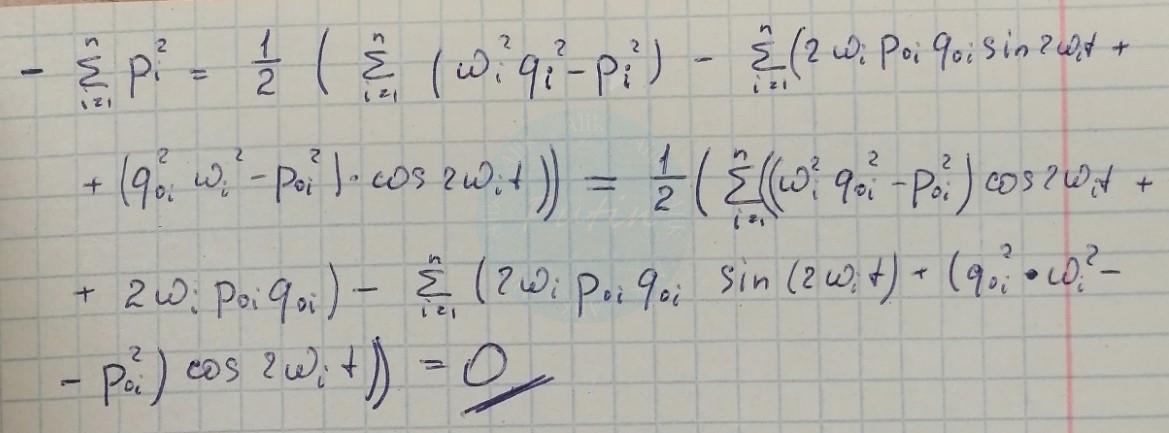 - \sum_{i=1}^{n} p_i^2 = \frac{1}{2} ( \sum_{i=1}^{n} (ω_i^2 q_i^2 - p_i^2) - \sum_{i=1}^{n} (2 ω_i p_{oi} q_{oi} sin 2ω_i t +
+ (q_{oi}^2 ω_i^2 - p_{oi}^2) · cos 2ω_i t)) = \frac{1}{2} ( \sum_{i=1}^{n} ((ω_i^2 q_{oi}^2 - p_{oi}^2) cos 2ω_i t +
+ 2ω_i p_{oi} q_{oi}) - \sum_{i=1}^{n} (2ω_i p_{oi} q_{oi} sin (2ω_i t) + (q_{oi}^2 · ω_i^2 -
- p_{oi}^2) cos 2ω_i t)) = 0